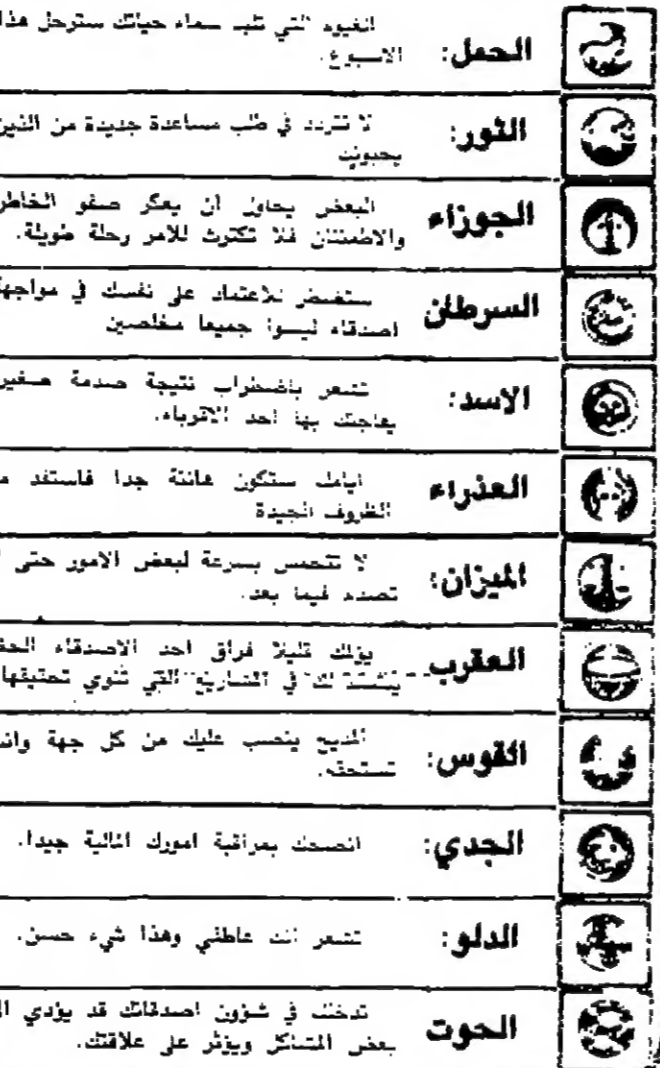 الحمل: الغيوم التي تلبد سماء حياتك سترحل هذا
الاسبوع.
الثور: لا تتردد في طلب مساعدة جديدة من الذين
يحبونك
الجوزاء البعض يحاول ان يعكر صفو الخاطر
والاطمئنان فلا تكترث للامر رحلة طويلة.
السرطان ستضطر للاعتماد على نفسك في مواجهة
اصدقاء ليسوا جميعا مخلصين
الاسد: تشعر باضطراب نتيجة صدمة صغيرة
يفاجئك بها احد الاقرباء.
العذراء ايامك ستكون هانئة جدا فاستفد
الظروف الجيدة
الميزان: لا تتحمس بسرعة لبعض الامور حتى
تصدم فيما بعد.
العقرب يؤلمك قليلا فراق احد الاصدقاء
في المشاريع التي تنوي تحقيقها
القوس: المديح ينصب عليك من كل جهة وانت
تستحقه.
الجدي: انصحك بمراقبة امورك المالية جيدا.
الدلو: تشعر انك عاطفي وهذا شيء حسن.
الحوت تدخلك في شؤون اصدقائك قد يؤدي
بعض المشاكل ويؤثر على علاقتك.